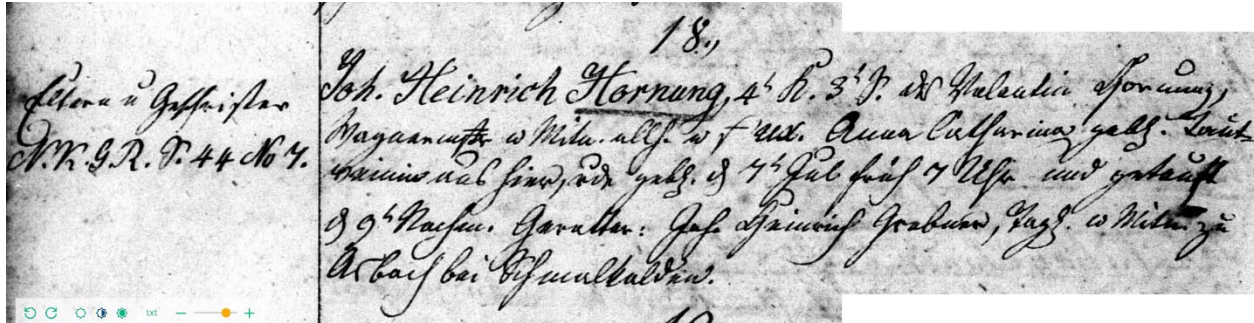 18.,
Eltern u Geschwister
N. K. G. R. S. 44 No 7.
Joh. Heinrich Hornung, 4t K. 3t S. des Valentin Hornung,
Wagnermstr u Mitn. allh. u s. ux. Anna Catharina gebh. Traut-
veinin aus hier, wde gebh. d 7t Jul früh 7 Uhr und getauft
d 9t Nachm. Gevatter: Joh. Heinrich Grebner, Tagl. u Mitn. zu
Asbach bei Schmalkalden.
txt